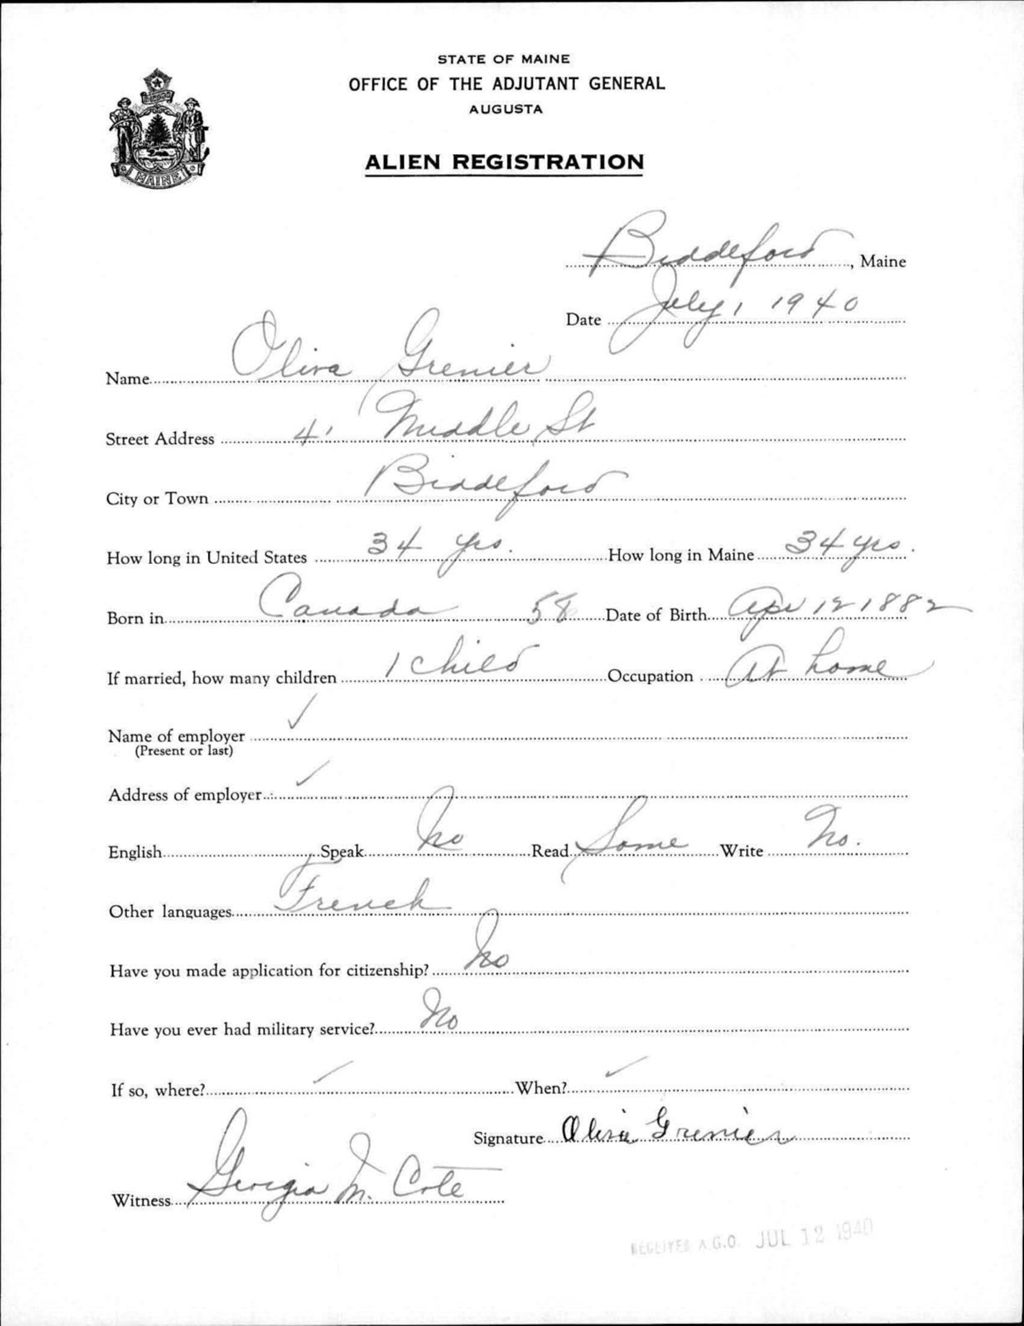 STATE OF MAINE
OFFICE OF THE ADJUTANT GENERAL
AUGUSTA
ALIEN REGISTRATION
MAINE
Biddeford, Maine
Date July 1, 1940
Name Oliva Grenier
Street Address 41 Middle St
City or Town Biddeford
How long in United States 34 yrs. How long in Maine 34 yrs.
Born in Canada 58 Date of Birth Apr 12 1882
If married, how many children 1 child Occupation At home
Name of employer ✓
(Present or last)
Address of employer ✓
English Speak No Read Some Write No.
Other languages French
Have you made application for citizenship? No
Have you ever had military service? No
If so, where? ✓ When? ✓
Signature Oliva Grenier
Witness Georgia M. Cote
RECEIVED A.G.O. JUL 12 1940